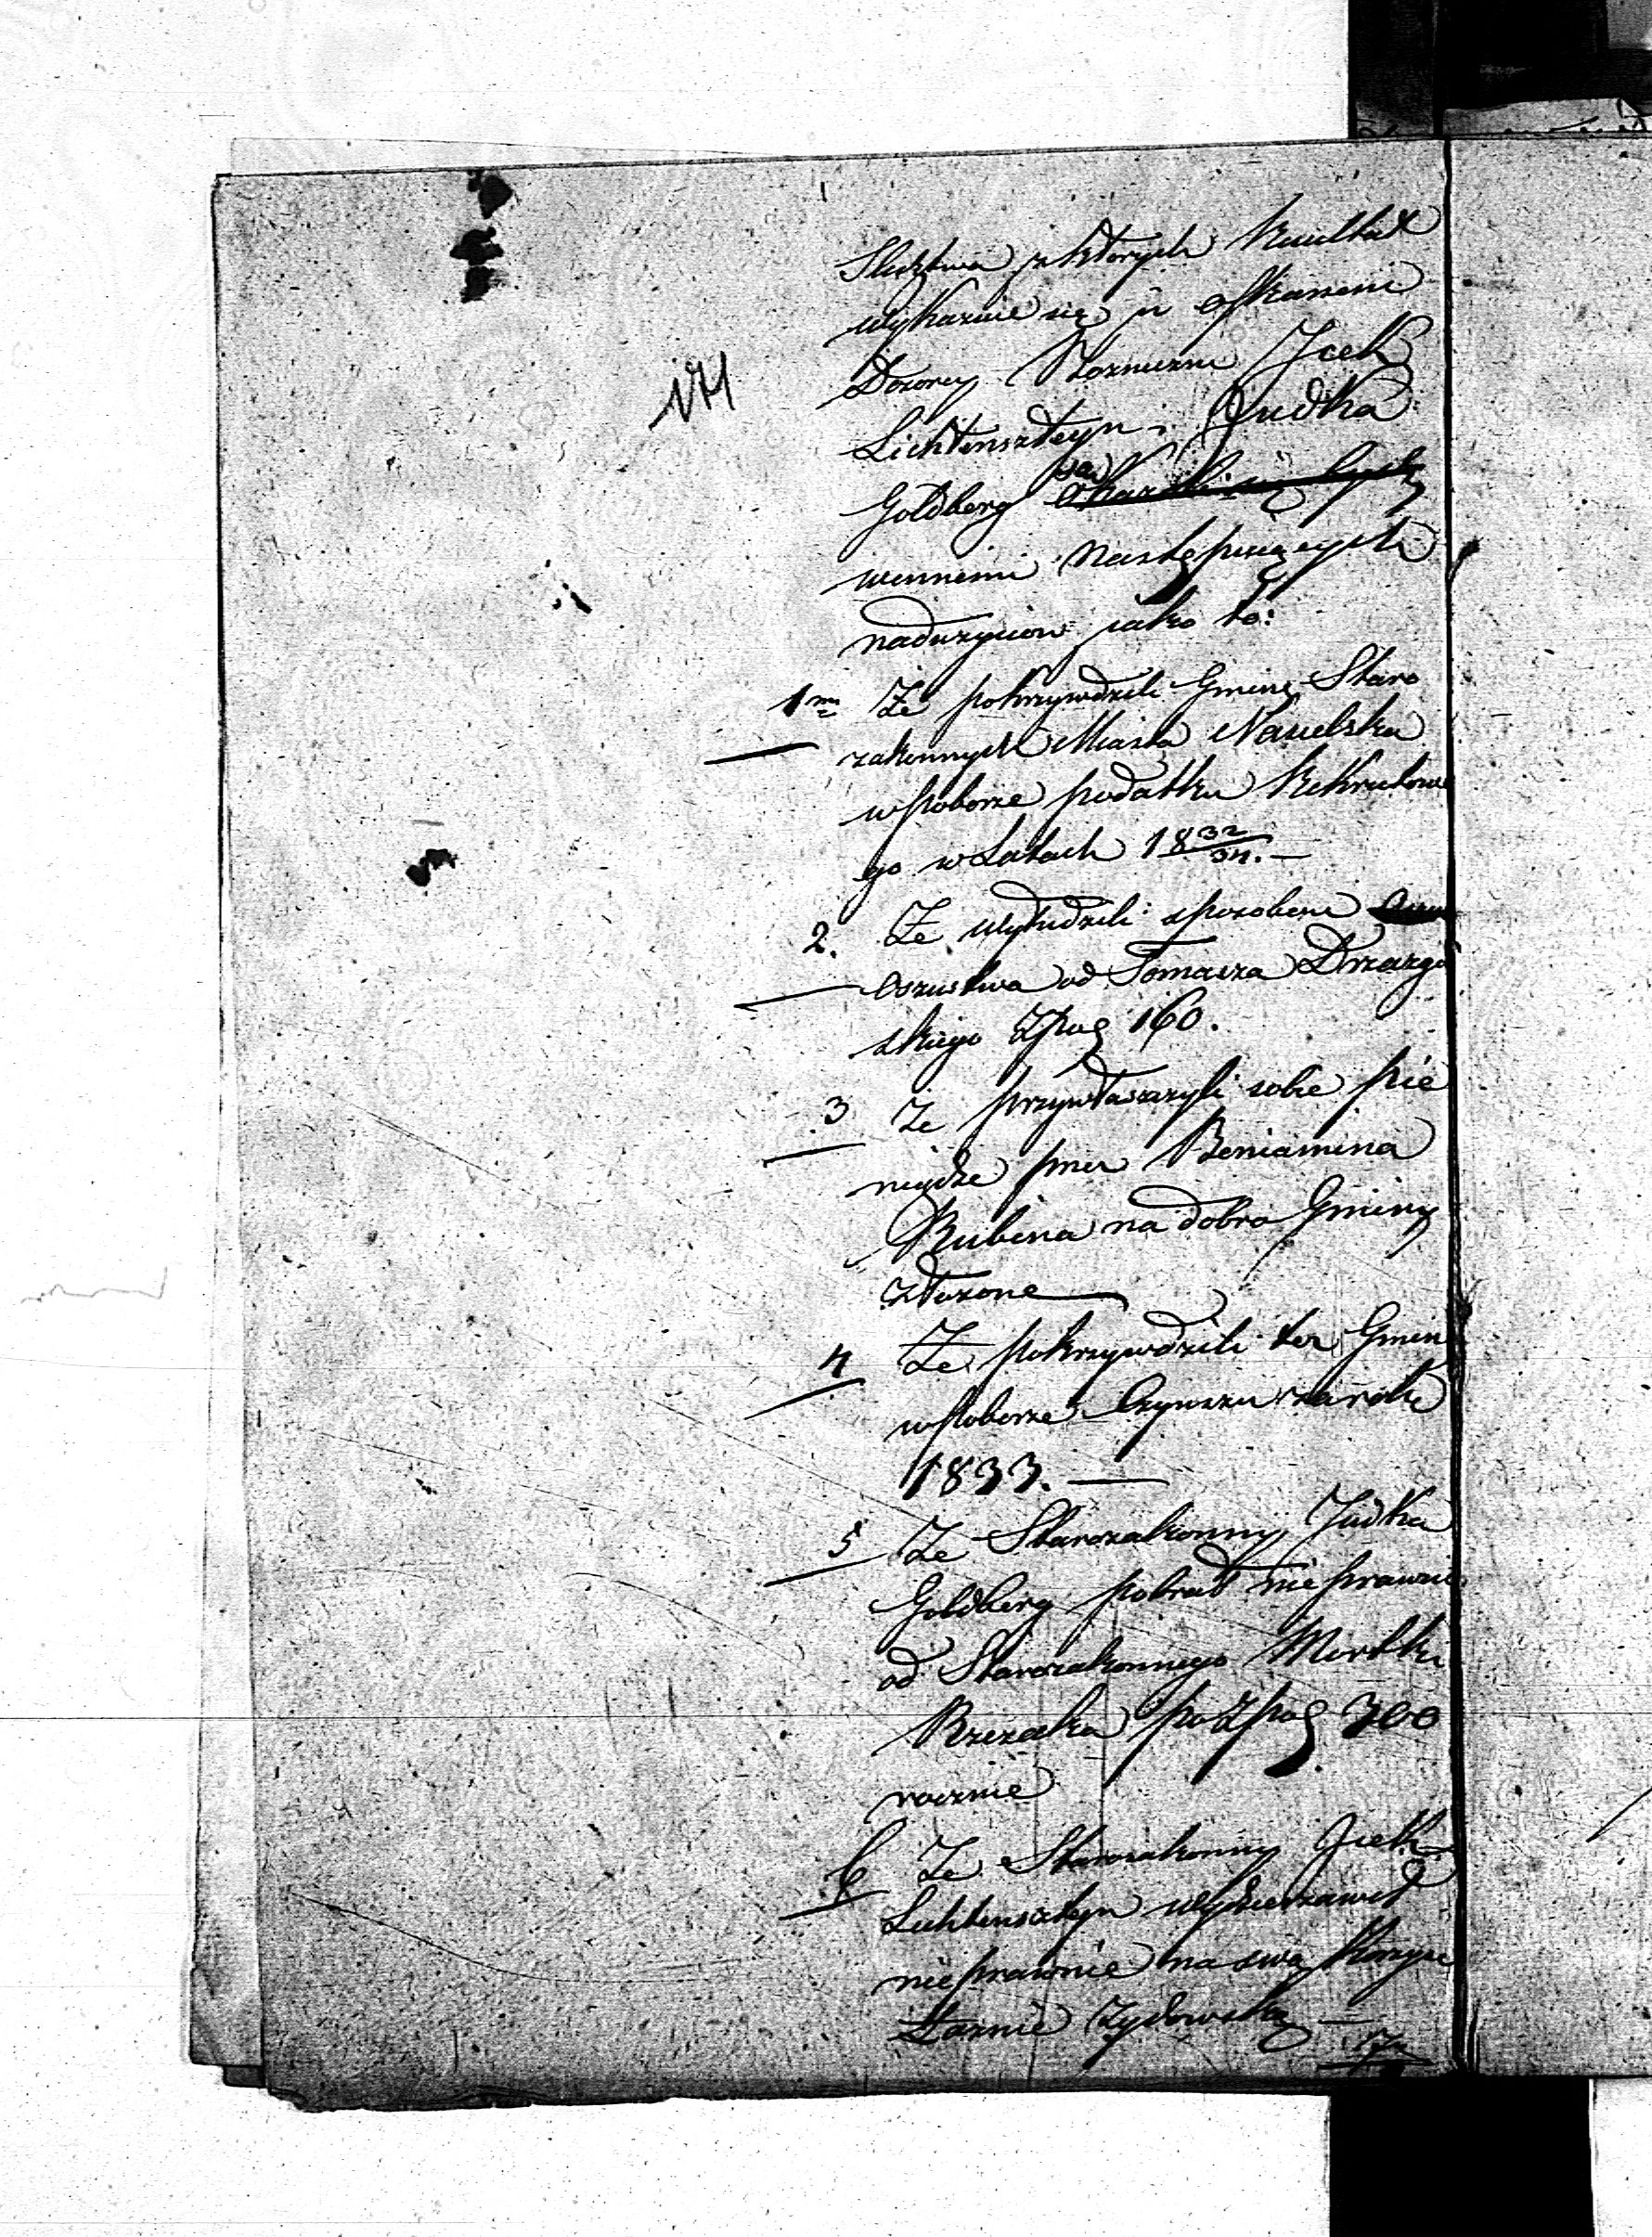 Sledztwa z których Rezultat
wykazuie się iż oskarzeni
Dozorcy Bozniczni Icek
171
Lichtenszteyn i Judka
Goldberg są
winnemi następuiących
naduzyciow iako to:
1mo Że pokrzywdzili Gminę Staro
zakonnych Miasta Nasielska
w poborze podatku Rekrutowe
go w Latach 18 32/34. —
2. Że wyłudzili sposobem
oszustwa od Tomasza Drzazgo
skiego Zpol 160.
3 Że przywłaszczyli sobie pie
niądze przez Beniamina
Rubina na dobro Gminy
złozone —
4 Że pokrzywdzili tez Gmin
w poborze Czynszu za rok
1833. —
5 Że Starozakonny Judka
Goldberg pobrał nieprawnie
od Starozakonnego Mortki
Rzezaka po Zpol 300
rocznie
6 Że Starozakonny Icek
Lichtenszteyn wydzierzawił
nieprawnie na swą korzysc
Łaznie Zydowską —